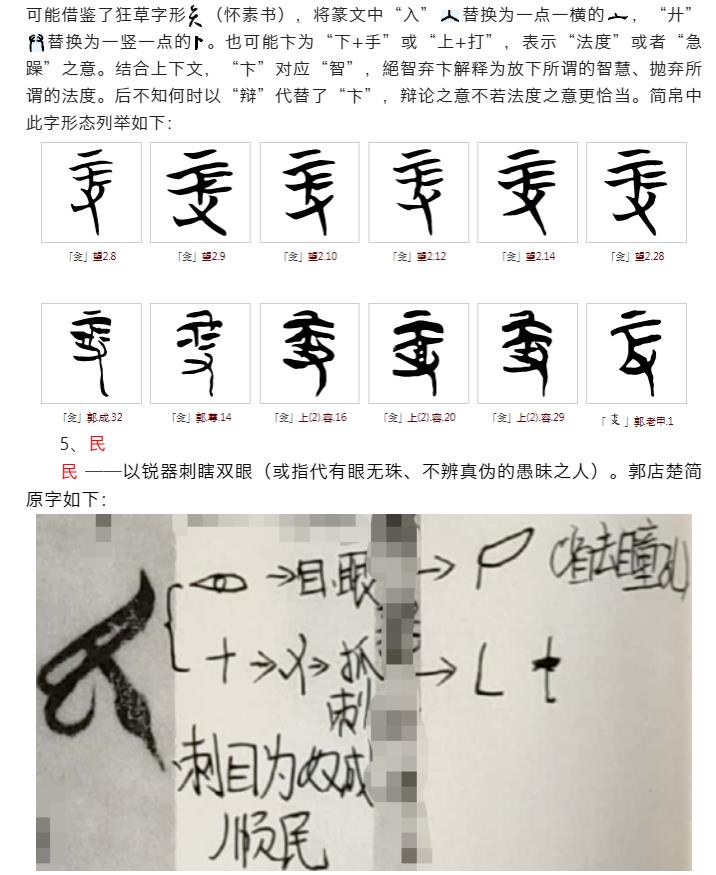 可能借鉴了狂草字形（怀素书），将篆文中“入”替换为一点一横的，“廾”
替换为一竖一点的。也可能卞为“下+手”或“上+打”，表示“法度”或者“急
躁”之意。结合上下文，“卞”对应“智”，絕智弃卞解释为放下所谓的智慧、抛弃所
谓的法度。后不知何时以“辩”代替了“卞”，辩论之意不若法度之意更恰当。简帛中
此字形态列举如下：
「㕘」望2.8 「㕘」望2.9 「㕘」望2.10 「㕘」望2.12 「㕘」望2.14 「㕘」望2.28
「㕘」郭.成.32 「㕘」郭.尊.14 「㕘」上(2).容.16 「㕘」上(2).容.20 「㕘」上(2).容.29 「支」郭.老甲.1
5、民
民 ——以锐器刺瞎双眼（或指代有眼无珠、不辨真伪的愚昧之人）。郭店楚简
原字如下：
→目.眼 → （省去瞳孔
十→ → 抓 →
刺
刺目为奴成
顺民